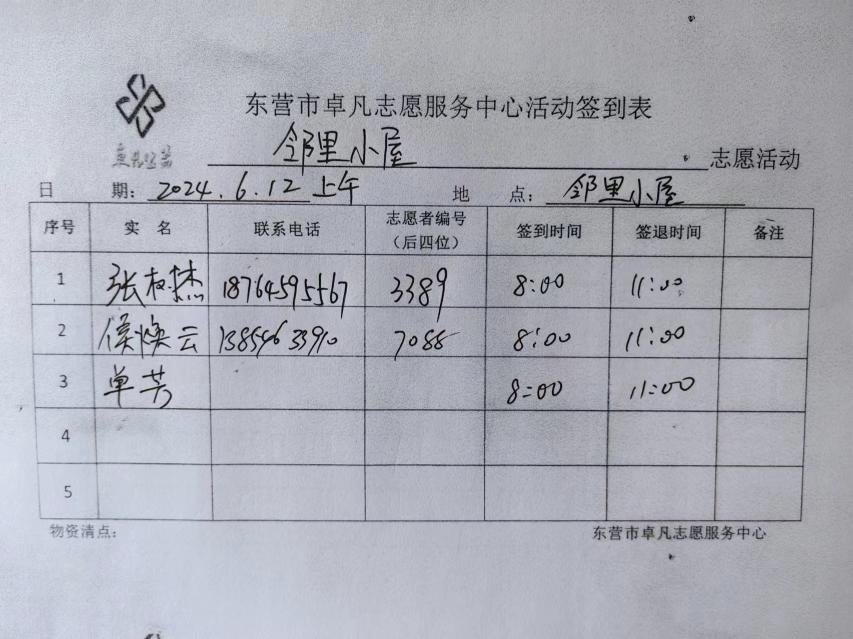 东营市卓凡志愿服务中心活动签到表
邻里小屋 志愿活动
日 期: 2024.6.12 上午 地 点: 邻里小屋
序号 实 名 联系电话 志愿者编号(后四位) 签到时间 签退时间 备注
1 张树杰 18764595567 3389 8:00 11:00
2 侯焕云 13854633910 7088 8:00 11:00
3 单芳 8:00 11:00
4
5
物资清点: 东营市卓凡志愿服务中心